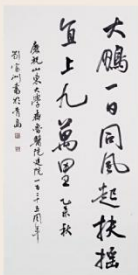 大鵬一日同風起扶摇
直上九萬里 乙未秋
慶祝山東大學齊魯醫院建院一百二十五周年
書於青島